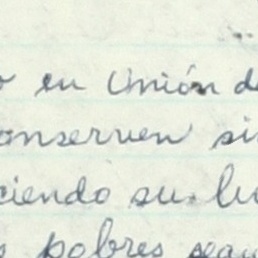 en Unión de
conserven si
ciendo su lu
pobres sean